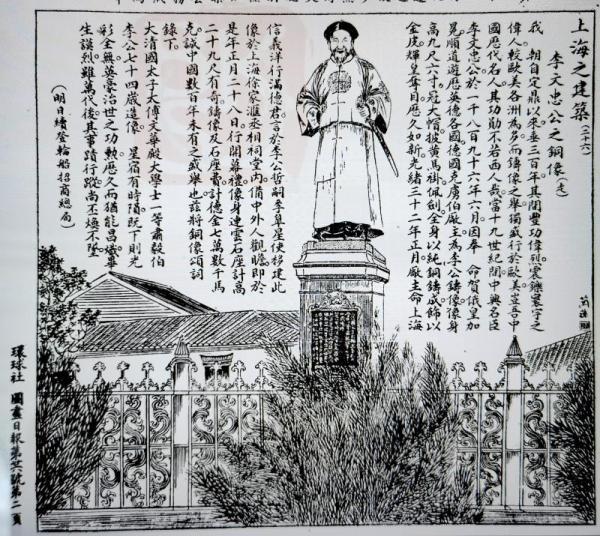 上海之建築(二十六)
李文忠公之銅像
我 朝自定鼎以來垂三百年其間豐功偉烈震鑠寰宇之
偉人較歐美各洲爲多而鑄像之舉獨盛行於歐美豈吾中
國歷代名人其功勛不若西人哉當十九世紀間中興名臣
李文忠公於一千八百九十六年六月因奉 命賀俄皇加
冕順道遊歷英德各國德國克虜伯廠主為李公鑄像像身
高九尺六寸冠大帽披黃馬褂佩劍全身以純銅鑄成飾以
金虎輝皇奪目歷久如新光緒三十二年正月廠主命上海
信義洋行滿德君言於李公哲嗣季皋星使移建此
像於上海徐家滙李相祠堂內備中外人觀瞻即於
是年正月二十八日行開幕禮像身連雲石座計高
二十九尺有奇鑄像及石座費計德金七萬數千馬
克誠中國數百年未有之盛舉也茲將銅像頌詞
錄下
大清國太子太傅文華殿大學士一等肅毅伯
李公七十四歲造像 星宿有時隕旣下則光
彩全無英豪治世之功勲歷久而猶能昌熾畢
生謨烈雖萬代後其事蹟行蹤尚丕煥不墜
(明日續登輪船招商總局)
環球社 圖畫日報第廿六號第二頁